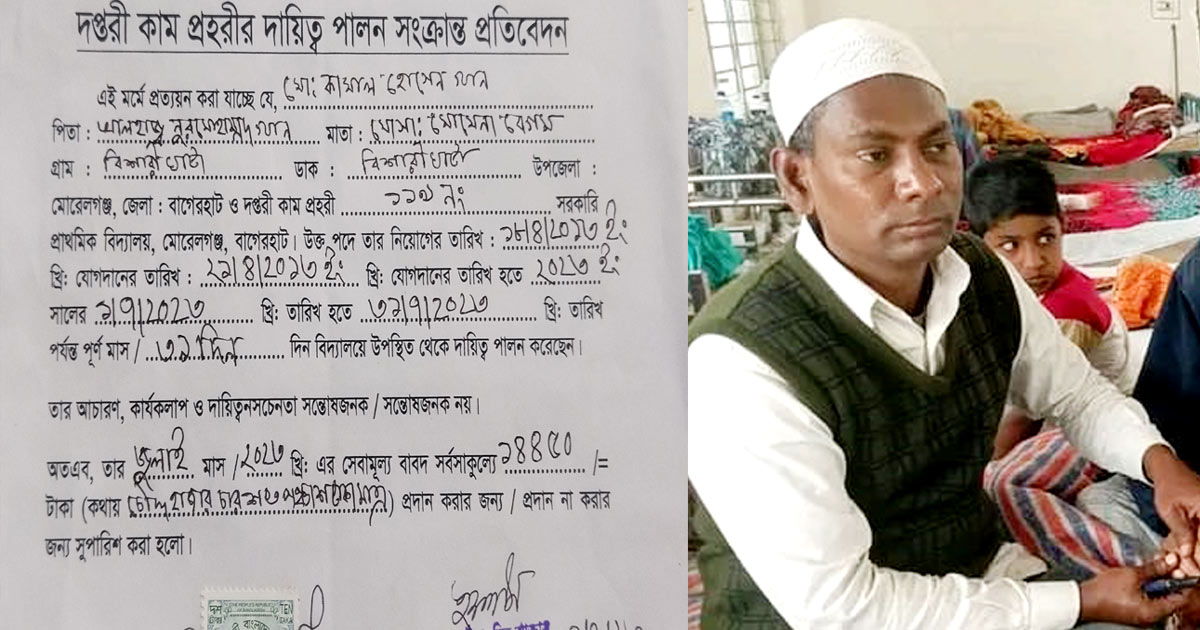 দপ্তরী কাম প্রহরীর দায়িত্ব পালন সংক্রান্ত প্রতিবেদন
এই মর্মে প্রত্যয়ন করা যাচ্ছে যে, মো: কামাল হোসেন খান
পিতা : আলহাজ্ব নুরমোহাম্মদ খান মাতা : মোসা: মোমেনা বেগম
গ্রাম : বিশারীঘাটা ডাক : বিশারীঘাটা উপজেলা :
মোরেলগঞ্জ, জেলা : বাগেরহাট ও দপ্তরী কাম প্রহরী ১১৯ নং সরকারি
প্রাথমিক বিদ্যালয়, মোরেলগঞ্জ, বাগেরহাট। উক্ত পদে তার নিয়োগের তারিখ : ১৮/৪/২০১৩ ইং
খ্রি: যোগদানের তারিখ : ২১/৪/২০১৩ ইং খ্রি: যোগদানের তারিখ হতে ২০২৩ ইং
সালের ১/৭/২০২৩ খ্রি: তারিখ হতে ৩১/৭/২০২৩ খ্রি: তারিখ
পর্যন্ত পূর্ণ মাস / ৩১ দিন দিন বিদ্যালয়ে উপস্থিত থেকে দায়িত্ব পালন করেছেন।
তার আচারণ, কার্যকলাপ ও দায়িত্বনসচেনতা সন্তোষজনক / সন্তোষজনক নয়।
অতএব, তার জুলাই মাস / ২০২৩ খ্রি: এর সেবামূল্য বাবদ সর্বসাকুল্যে ১৪৪৫০ /=
টাকা (কথায় চৌদ্দ হাজার চারশত পঞ্চাশ টাকা মাত্র) প্রদান করার জন্য / প্রদান না করার
জন্য সুপারিশ করা হলো।